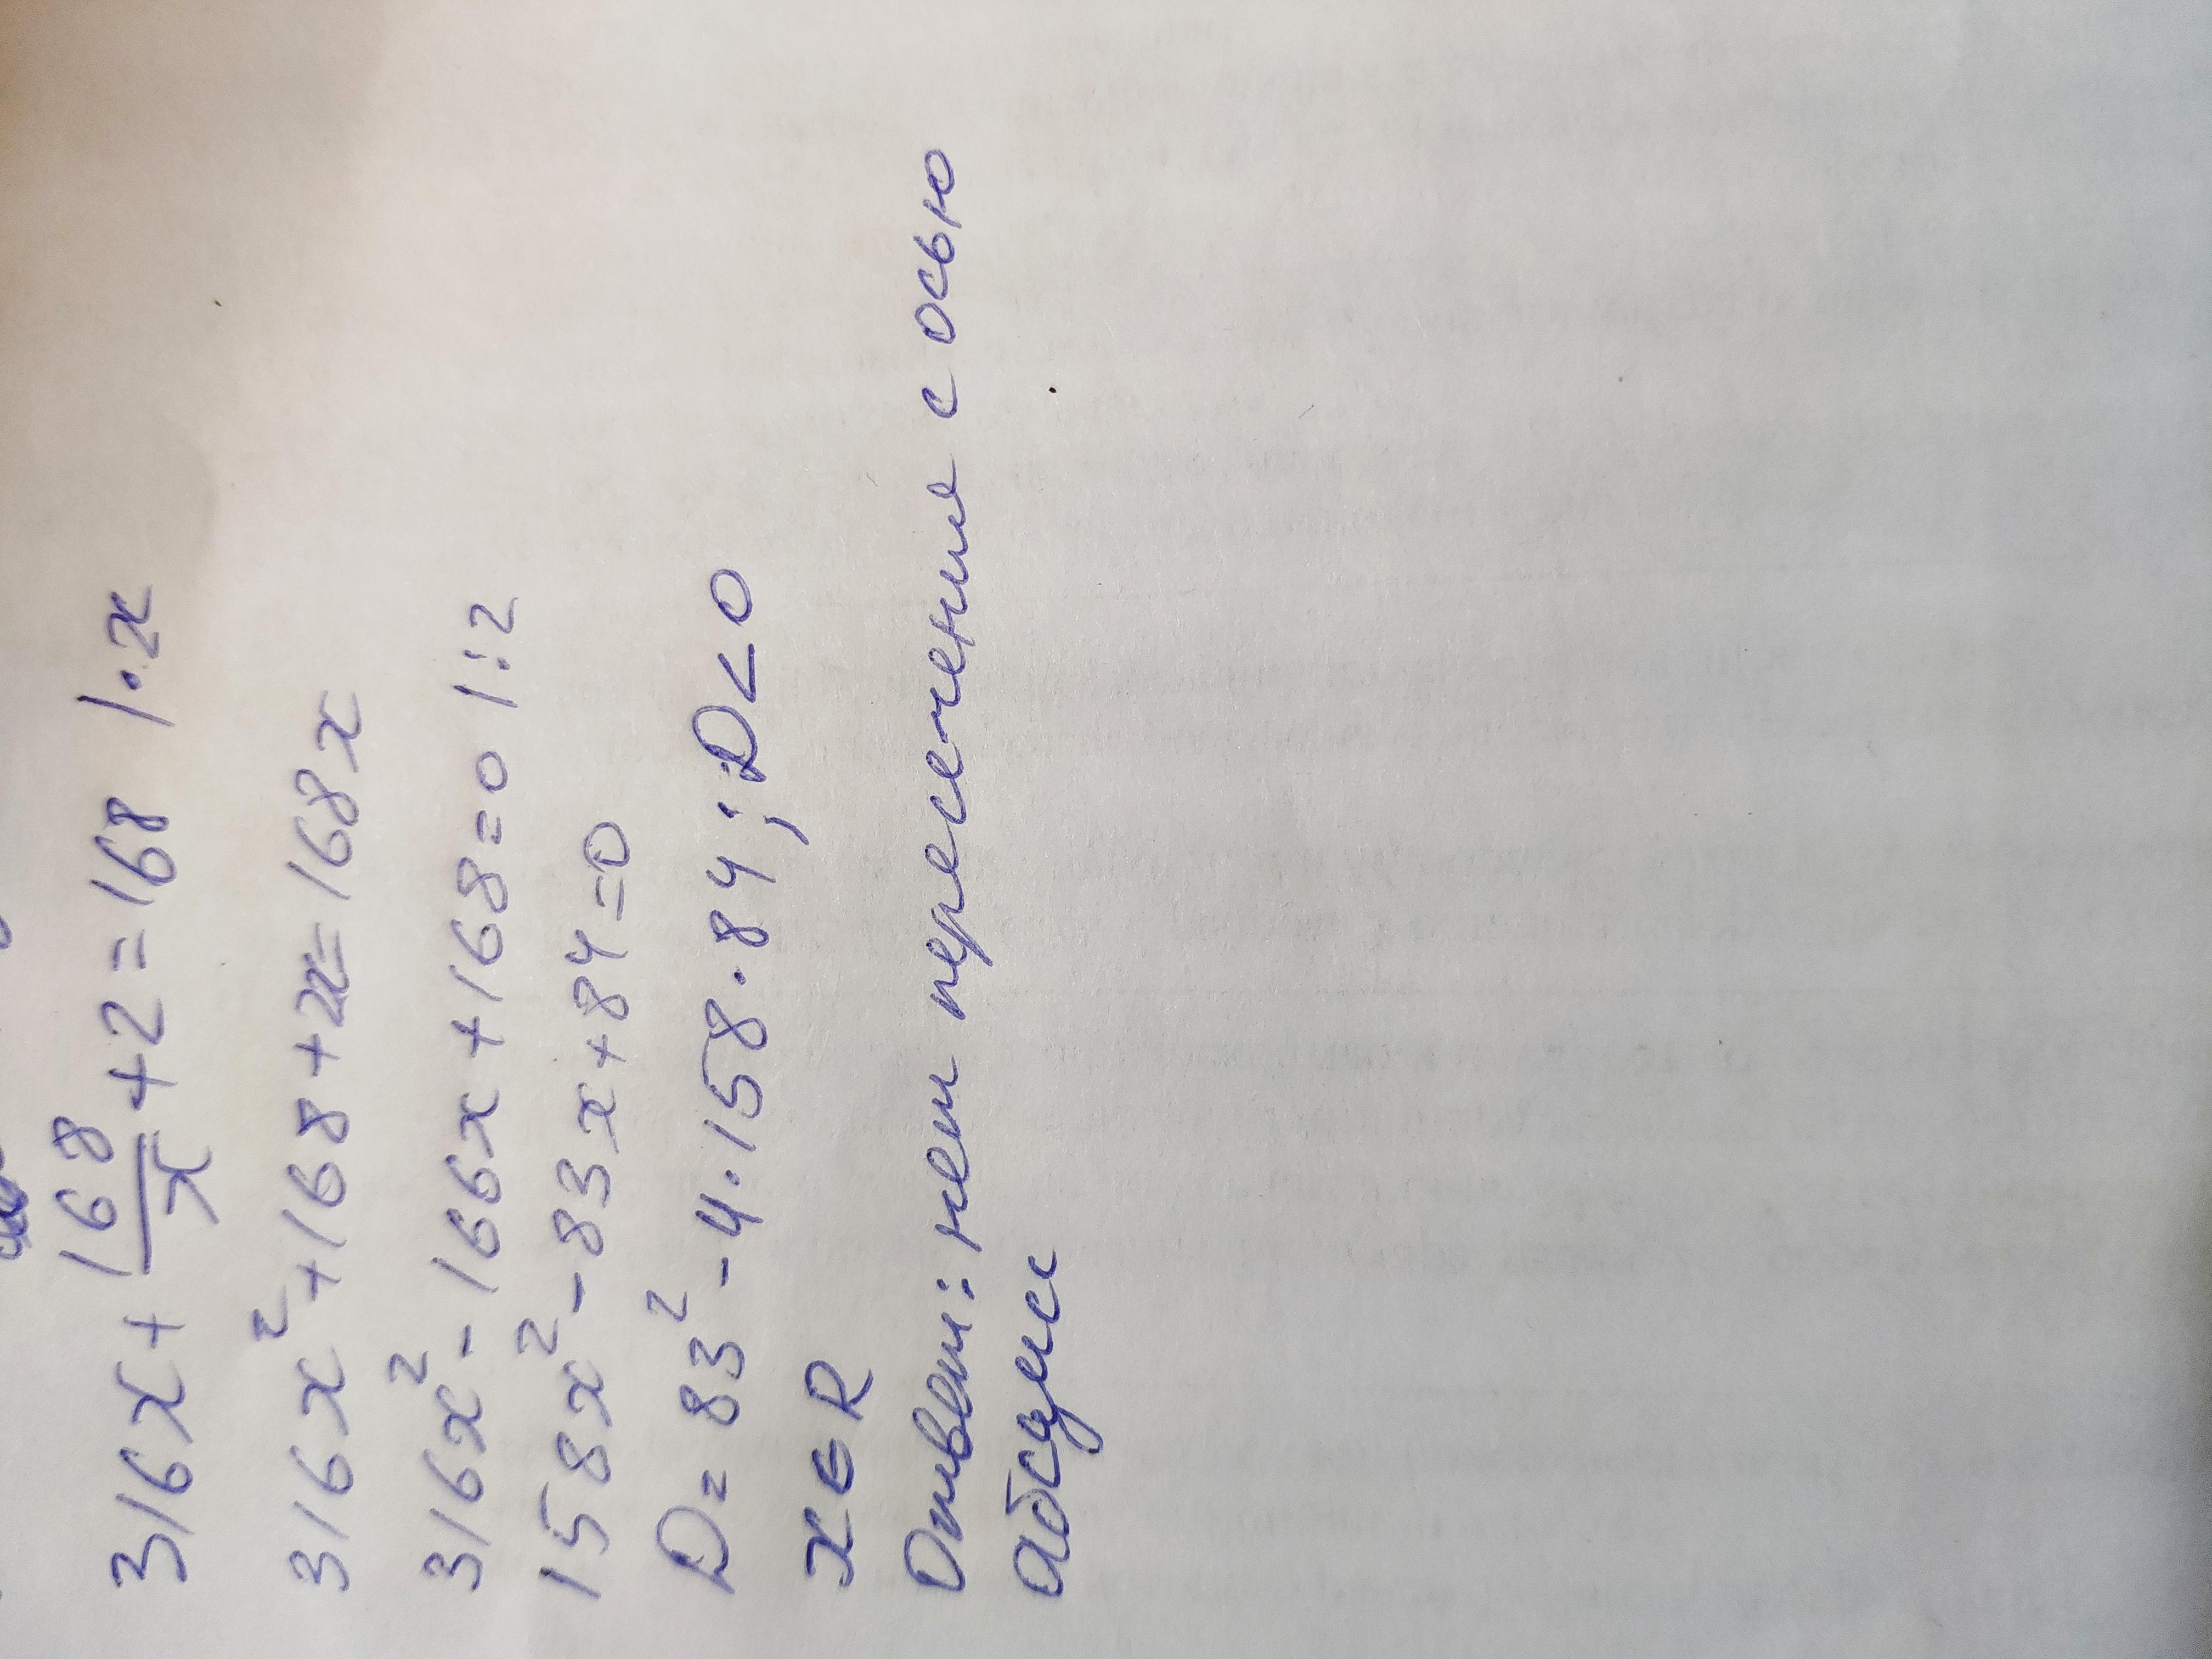 316x + 168/x + 2 = 168 | · x
316x² + 168 + 2x = 168x
316x² - 166x + 168 = 0 | : 2
158x² - 83x + 84 = 0
D = 83² - 4 · 158 · 84 ; D < 0
x ∈ R
Ответ: нет пересечение с осью
абсцисс